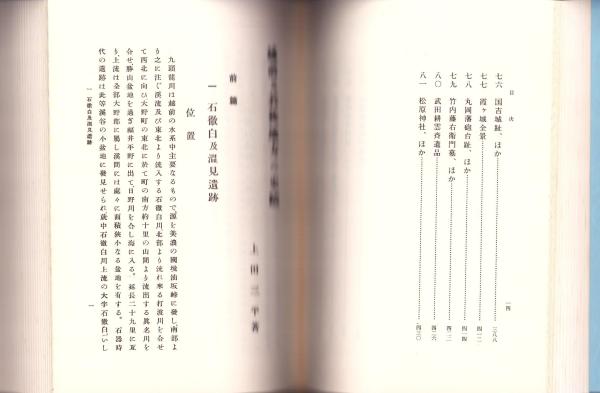 目次
七六 国古城趾、ほか……三八八
七七 霞ヶ城全景……四一二
七八 丸岡藩砲台趾、ほか……四一四
七九 竹内藤右衛門墓、ほか……四二二
八〇 武田耕雲斉遺品……四二六
八一 松原神社、ほか……四三〇
一四
上田三平著
前編
一 石徹白及温見遺跡
位置
九頭龍川は越前の水系中主要なるもので源を美濃の國境油坂峠に發し、南部よ
り之に注ぐ溪流及び東北より流入する石徹白川北部より流れ來る打波川を合せ
て西北に向ひ大野町の東北に於て町の南方約十里の山間より流出する眞名川を
合せ勝山盆地を過ぎ福井平野に出て日野川を合し海に入る。延長二十九里に亙
り、上流は全部大野郡に屬し溪間には處々に面積狹小なる盆地を有する。石器時
代の遺跡は此等溪谷の小盆地に發見せられ就中石徹白川上流の大字石徹白(いし
一 石徹白及温見遺跡
一